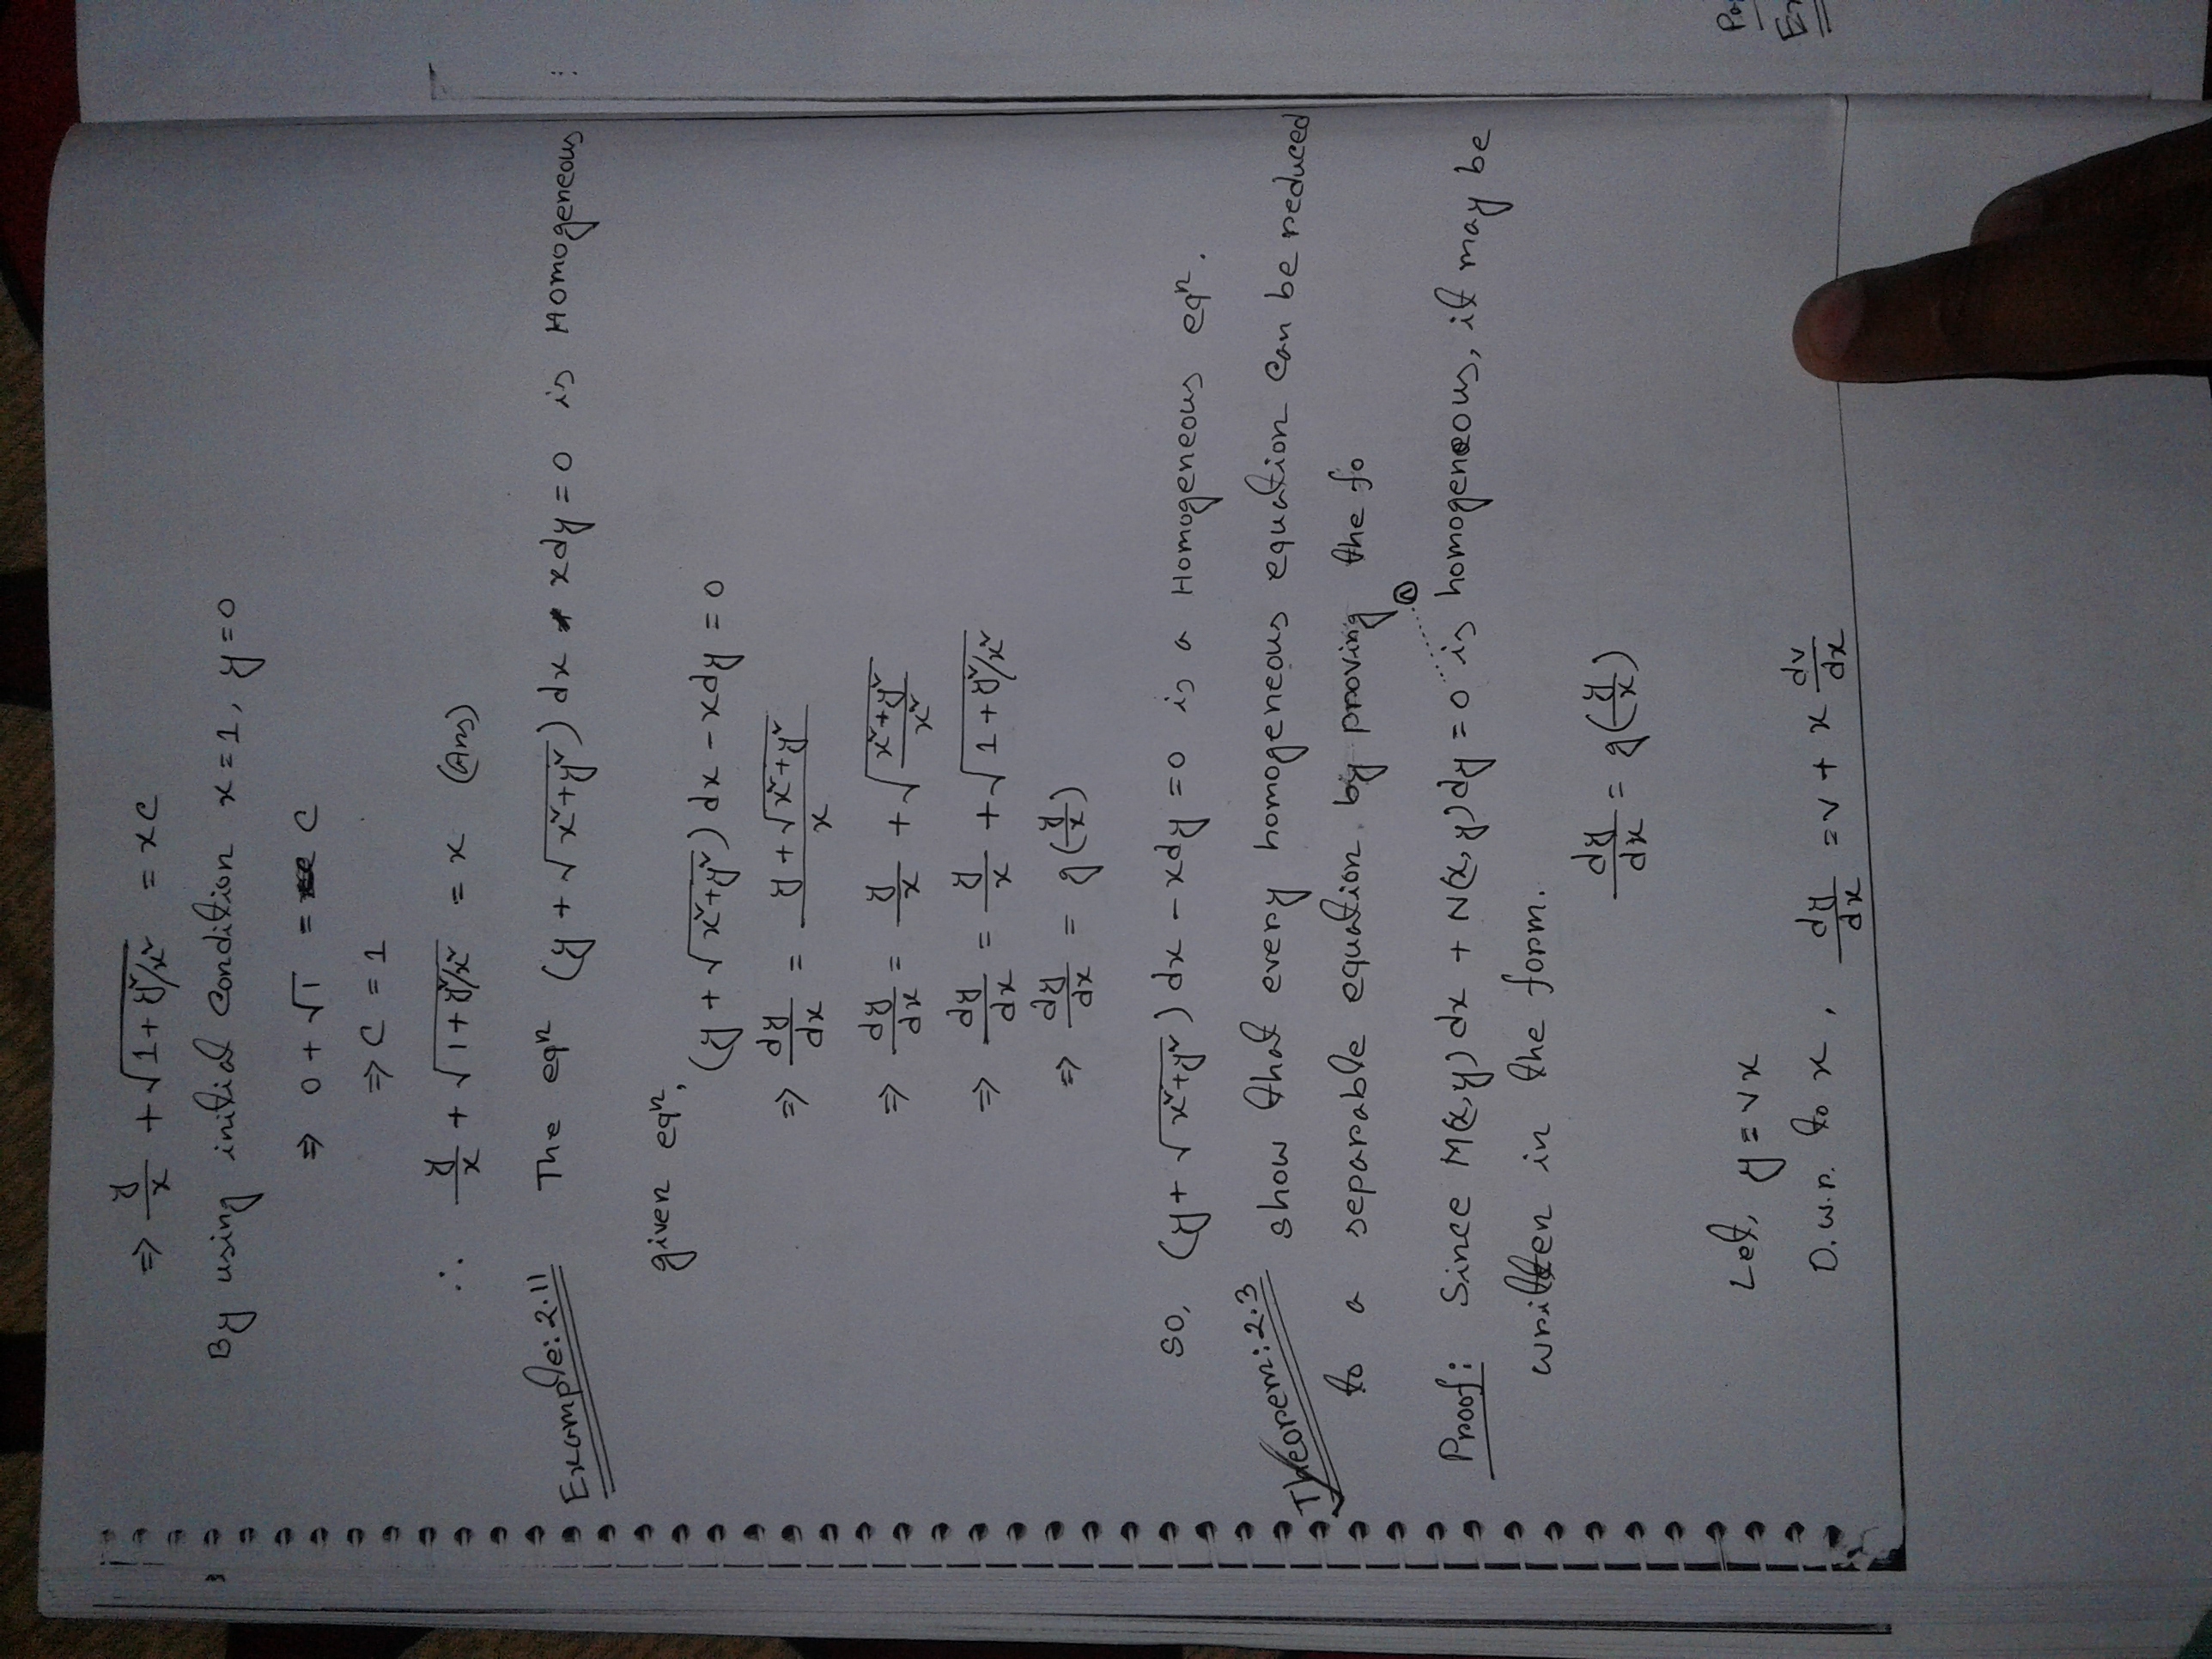 ⇒ y/x + √(1+y²/x²) = xc
By using initial condition x=1, y=0
⇒ 0 + √1 = c
⇒ C = 1
∴ y/x + √(1+y²/x²) = x (Ans)
Example: 2.11 The eqn (y + √(x²+y²)) dx - xdy = 0 is Homogeneous
given eqn,
(y + √(x²+y²)) dx - xdy = 0
⇒ dy/dx = (y + √(x²+y²))/x
⇒ dy/dx = y/x + √((x²+y²)/x²)
⇒ dy/dx = y/x + √(1+y²/x²)
⇒ dy/dx = g(y/x)
So, (y + √(x²+y²)) dx - xdy = 0 is a Homogeneous eqn.
Theorem: 2.3 show that every homogeneous equation can be reduced
to a separable equation by proving the fo
Proof: Since M(x,y) dx + N(x,y) dy = 0 is homogeneous, it may be
written in the form.
dy/dx = g(y/x)
Let, y = vx
D.w.r. to x, dy/dx = v + x dv/dx